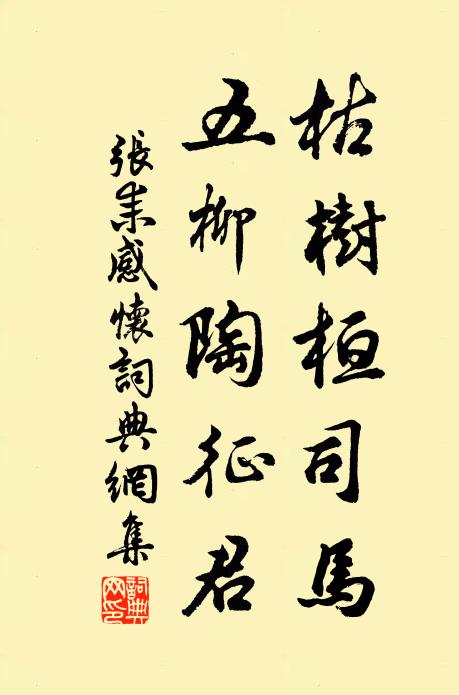 枯樹桓司馬
五柳陶征君
張耒感懷詞典網集
詞典網印